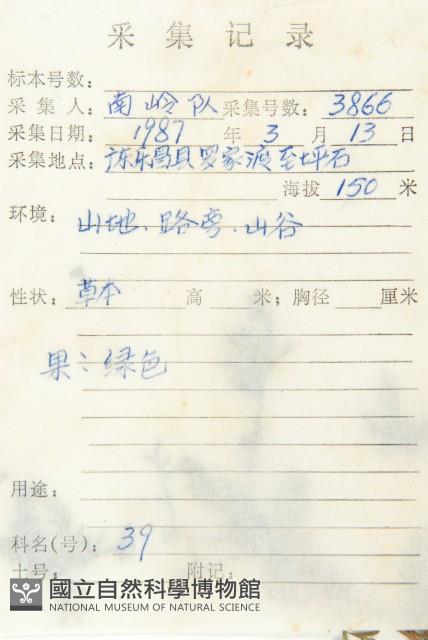 采集记录
标本号数：
采集人：南岭队 采集号数：3866
采集日期：1987年3月13日
采集地点：乐昌县罗家渡至坪石
海拔 150 米
环境：山地、路旁、山谷
性状：草本 高 米；胸径 厘米
果：绿色
用途：
科名(号)：39
土号： 附记：
國立自然科學博物館
NATIONAL MUSEUM OF NATURAL SCIENCE